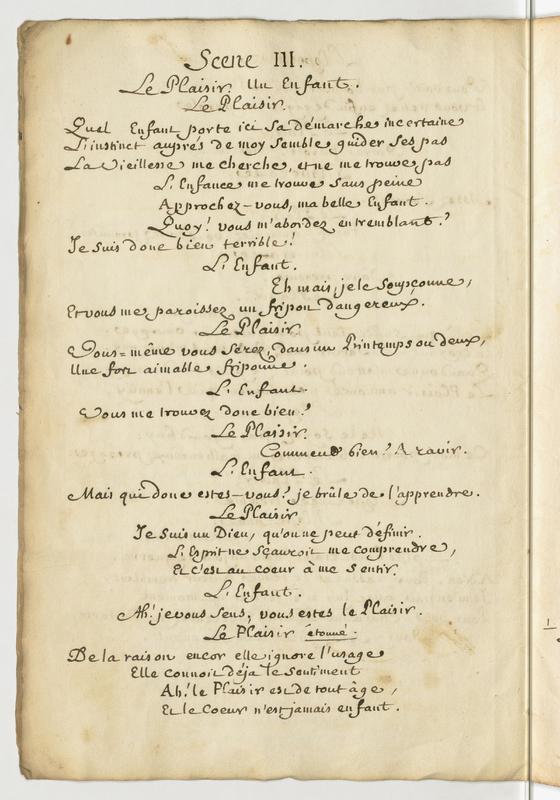 Scene III.
Le Plaisir. Un Enfant.
Le Plaisir.
Quel Enfant porte ici sa démarche incertaine
L'instinct auprés de moy semble guider ses pas
La Vieillesse me cherche, et ne me trouve pas
L'Enfance me trouve sans peine
Approchez-vous, ma belle Enfant.
Quoy! vous m'abordez en tremblant?
Je suis donc bien terrible!
L'Enfant.
Eh mais, je le soupçonne,
Et vous me paroissez un fripon dangereux.
Le Plaisir.
Vous=même vous serez, dans un Printemps ou deux,
Une fort aimable friponne.
L'Enfant.
Vous me trouvez donc bien?
Le Plaisir.
Comment bien? A ravir.
L'Enfant.
Mais qui donc estes-vous? je brûle de l'apprendre.
Le Plaisir
Je suis un Dieu, qu'on ne peut definir.
L'Esprit ne sçauroit me comprendre,
Et c'est au coeur à me sentir.
L'Enfant.
Ah! je vous sens; vous estes le Plaisir.
Le Plaisir étonné.
De la raison encor elle ignore l'usage
Elle connoit déja le sentiment
Ah! le Plaisir est de tout âge,
Et le Coeur n'est jamais enfant.